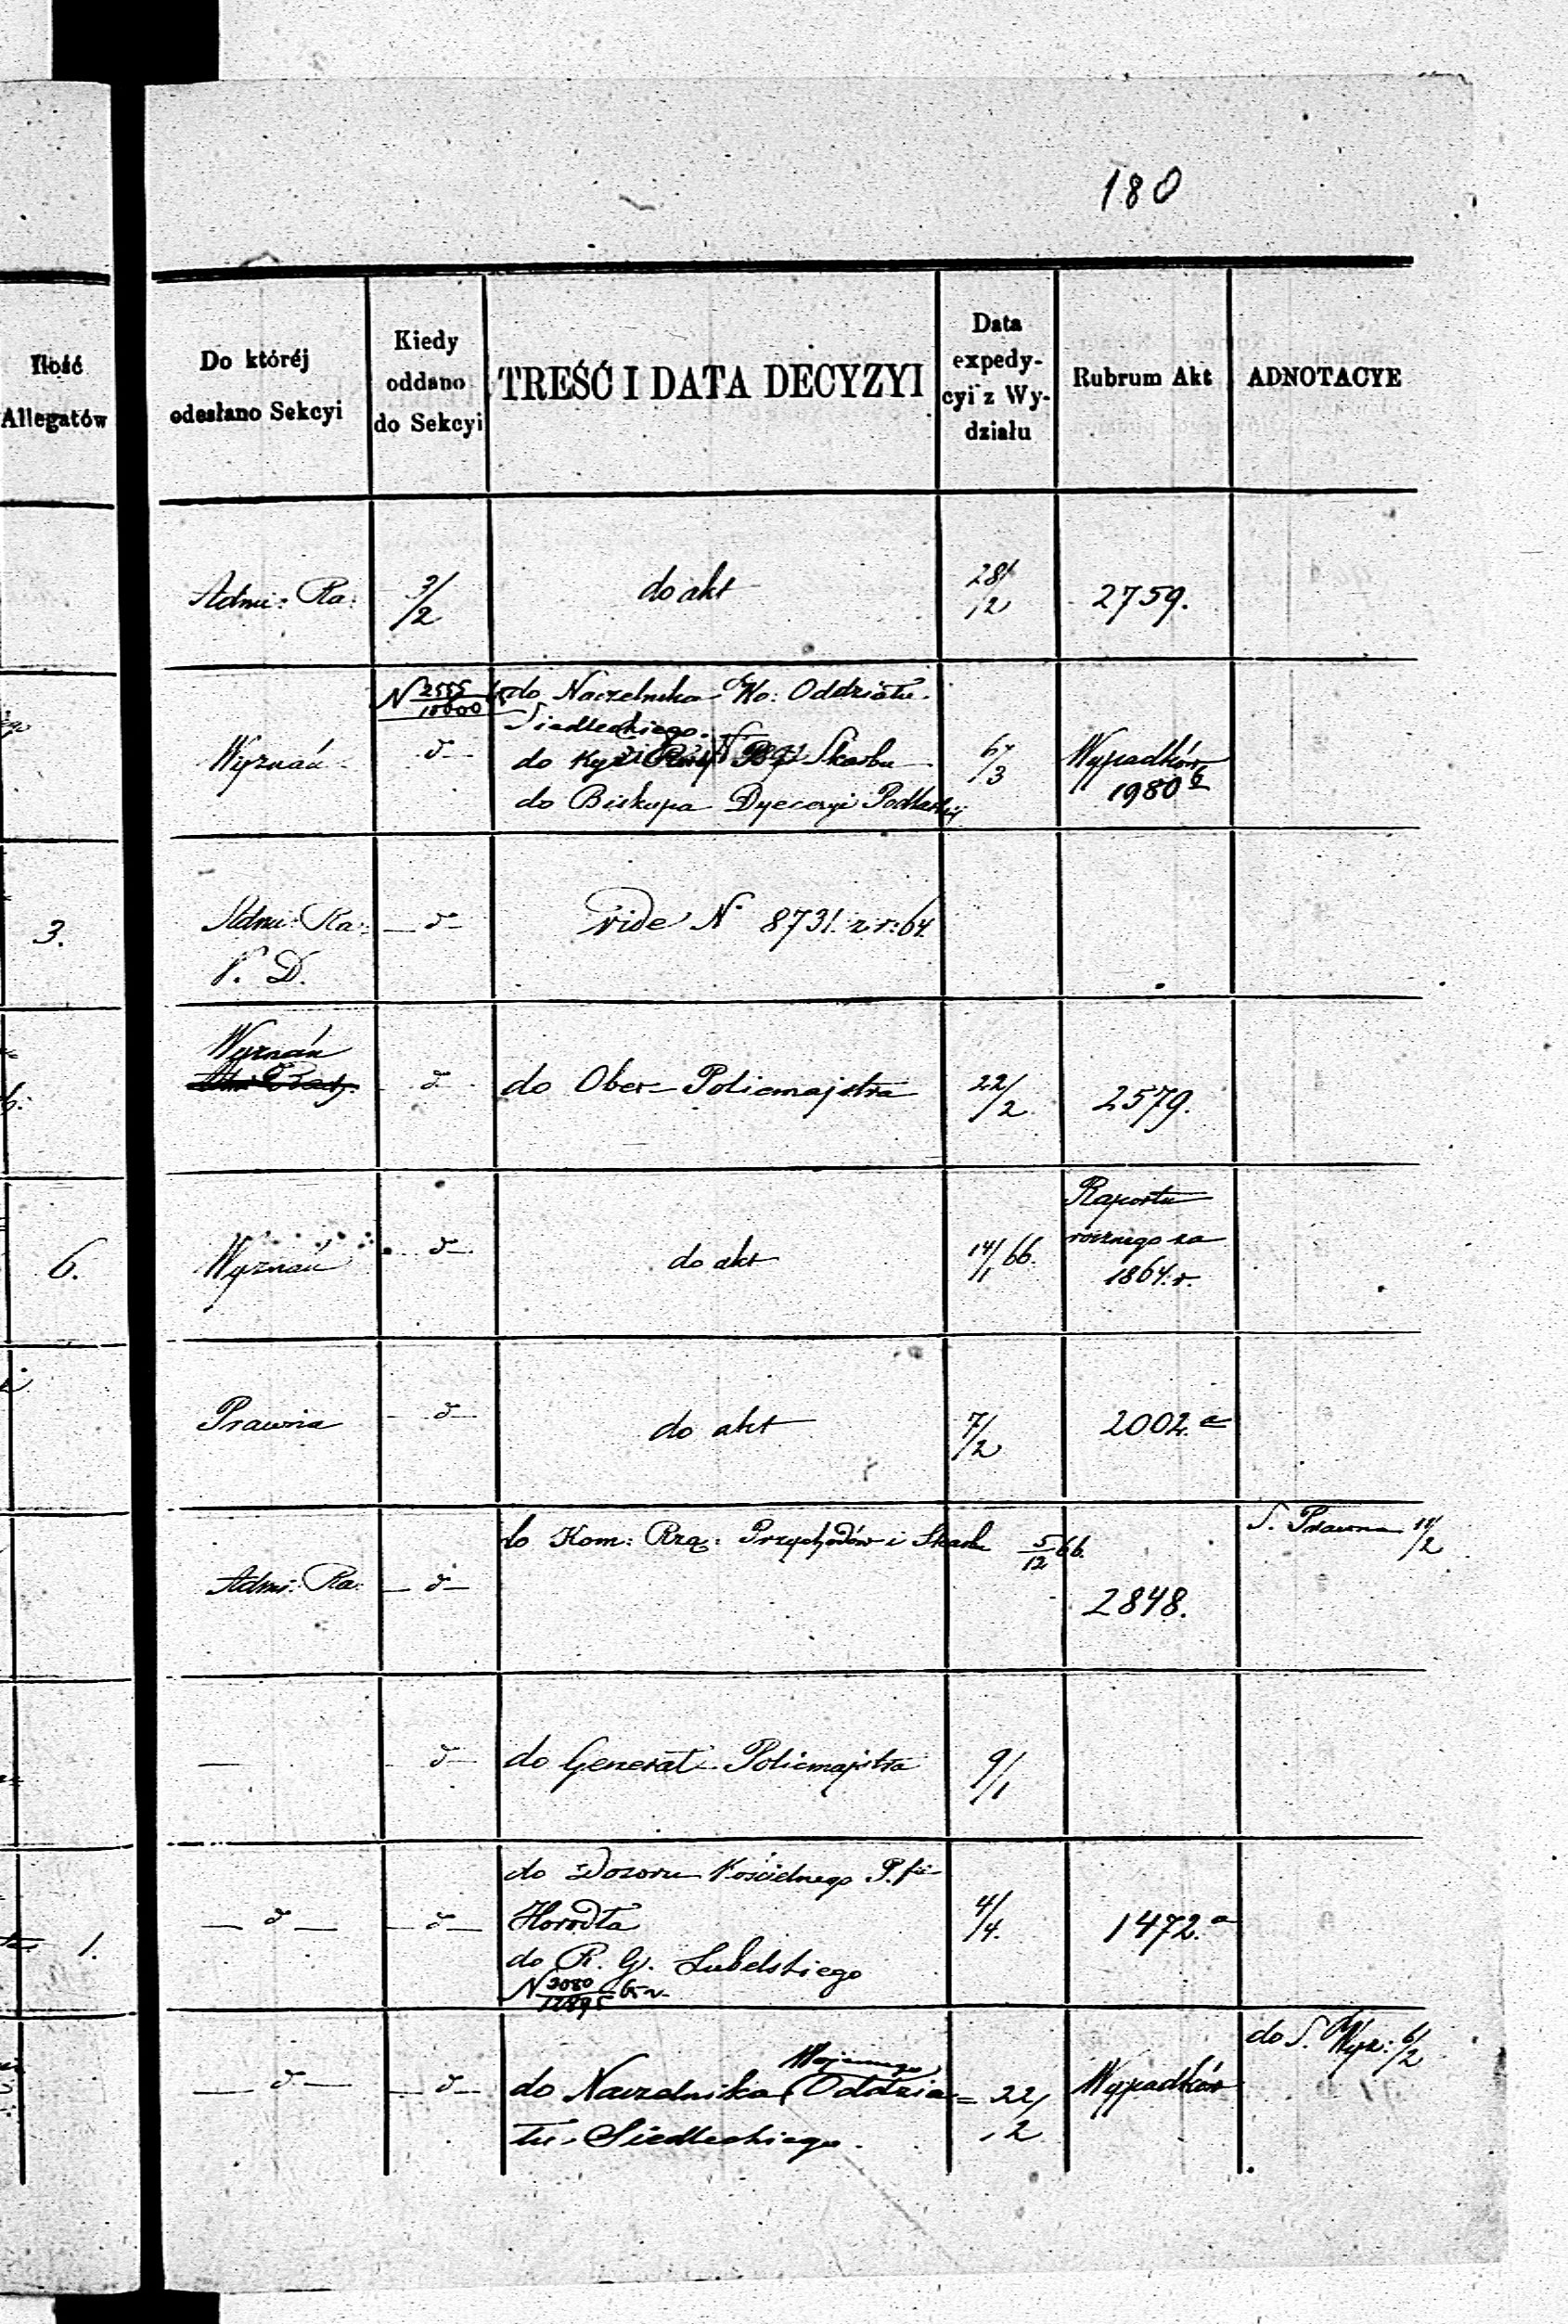 180
Ilość
Allegatów
Do któréj
odesłano Sekcyi
Kiedy
oddano
do Sekcyi
TREŚĆ I DATA DECYZYI
Data
expedy-
cyi z Wy-
działu
Rubrum Akt
ADNOTACYE
Admi: Ra: 3/2 do akt 28/12 2759.
N 2555/10000 65 do Naczelnika Wo: Oddziału
Siedleckiego.
Wyznań d° do Skarbu 6/3 Wypadków
do Biskupa Dyecezyi Podlaskiéj 1980
3. Admi: Ra: d° vide N° 8731. z r: 64.
P. D.
Wyznań
d° do Ober-Policmajstra 22/2 2579.
Raportu
6. Wyznań d° do akt 14/1 66. rocznego za
1864. r.
Prawna d° do akt 7/2 2002. a
do Kom: Rzą: Przychodów i Skarbu 5/12 66. S. Prawna 11/2
Admi: Ra: d° 2848.
— d° do Generał-Policmajstra 9/1
do Dozoru Kościelnego P.fii
1. d° d° Horodła 4/4. 1472. a
do R. G. Lubelskiego
N 3080/12895 65 r.
do S. Wyz: 6/2
Wojennego
d° d° do Naczelnika Oddzia= 22/2 Wypadków
łu Siedleckiego.